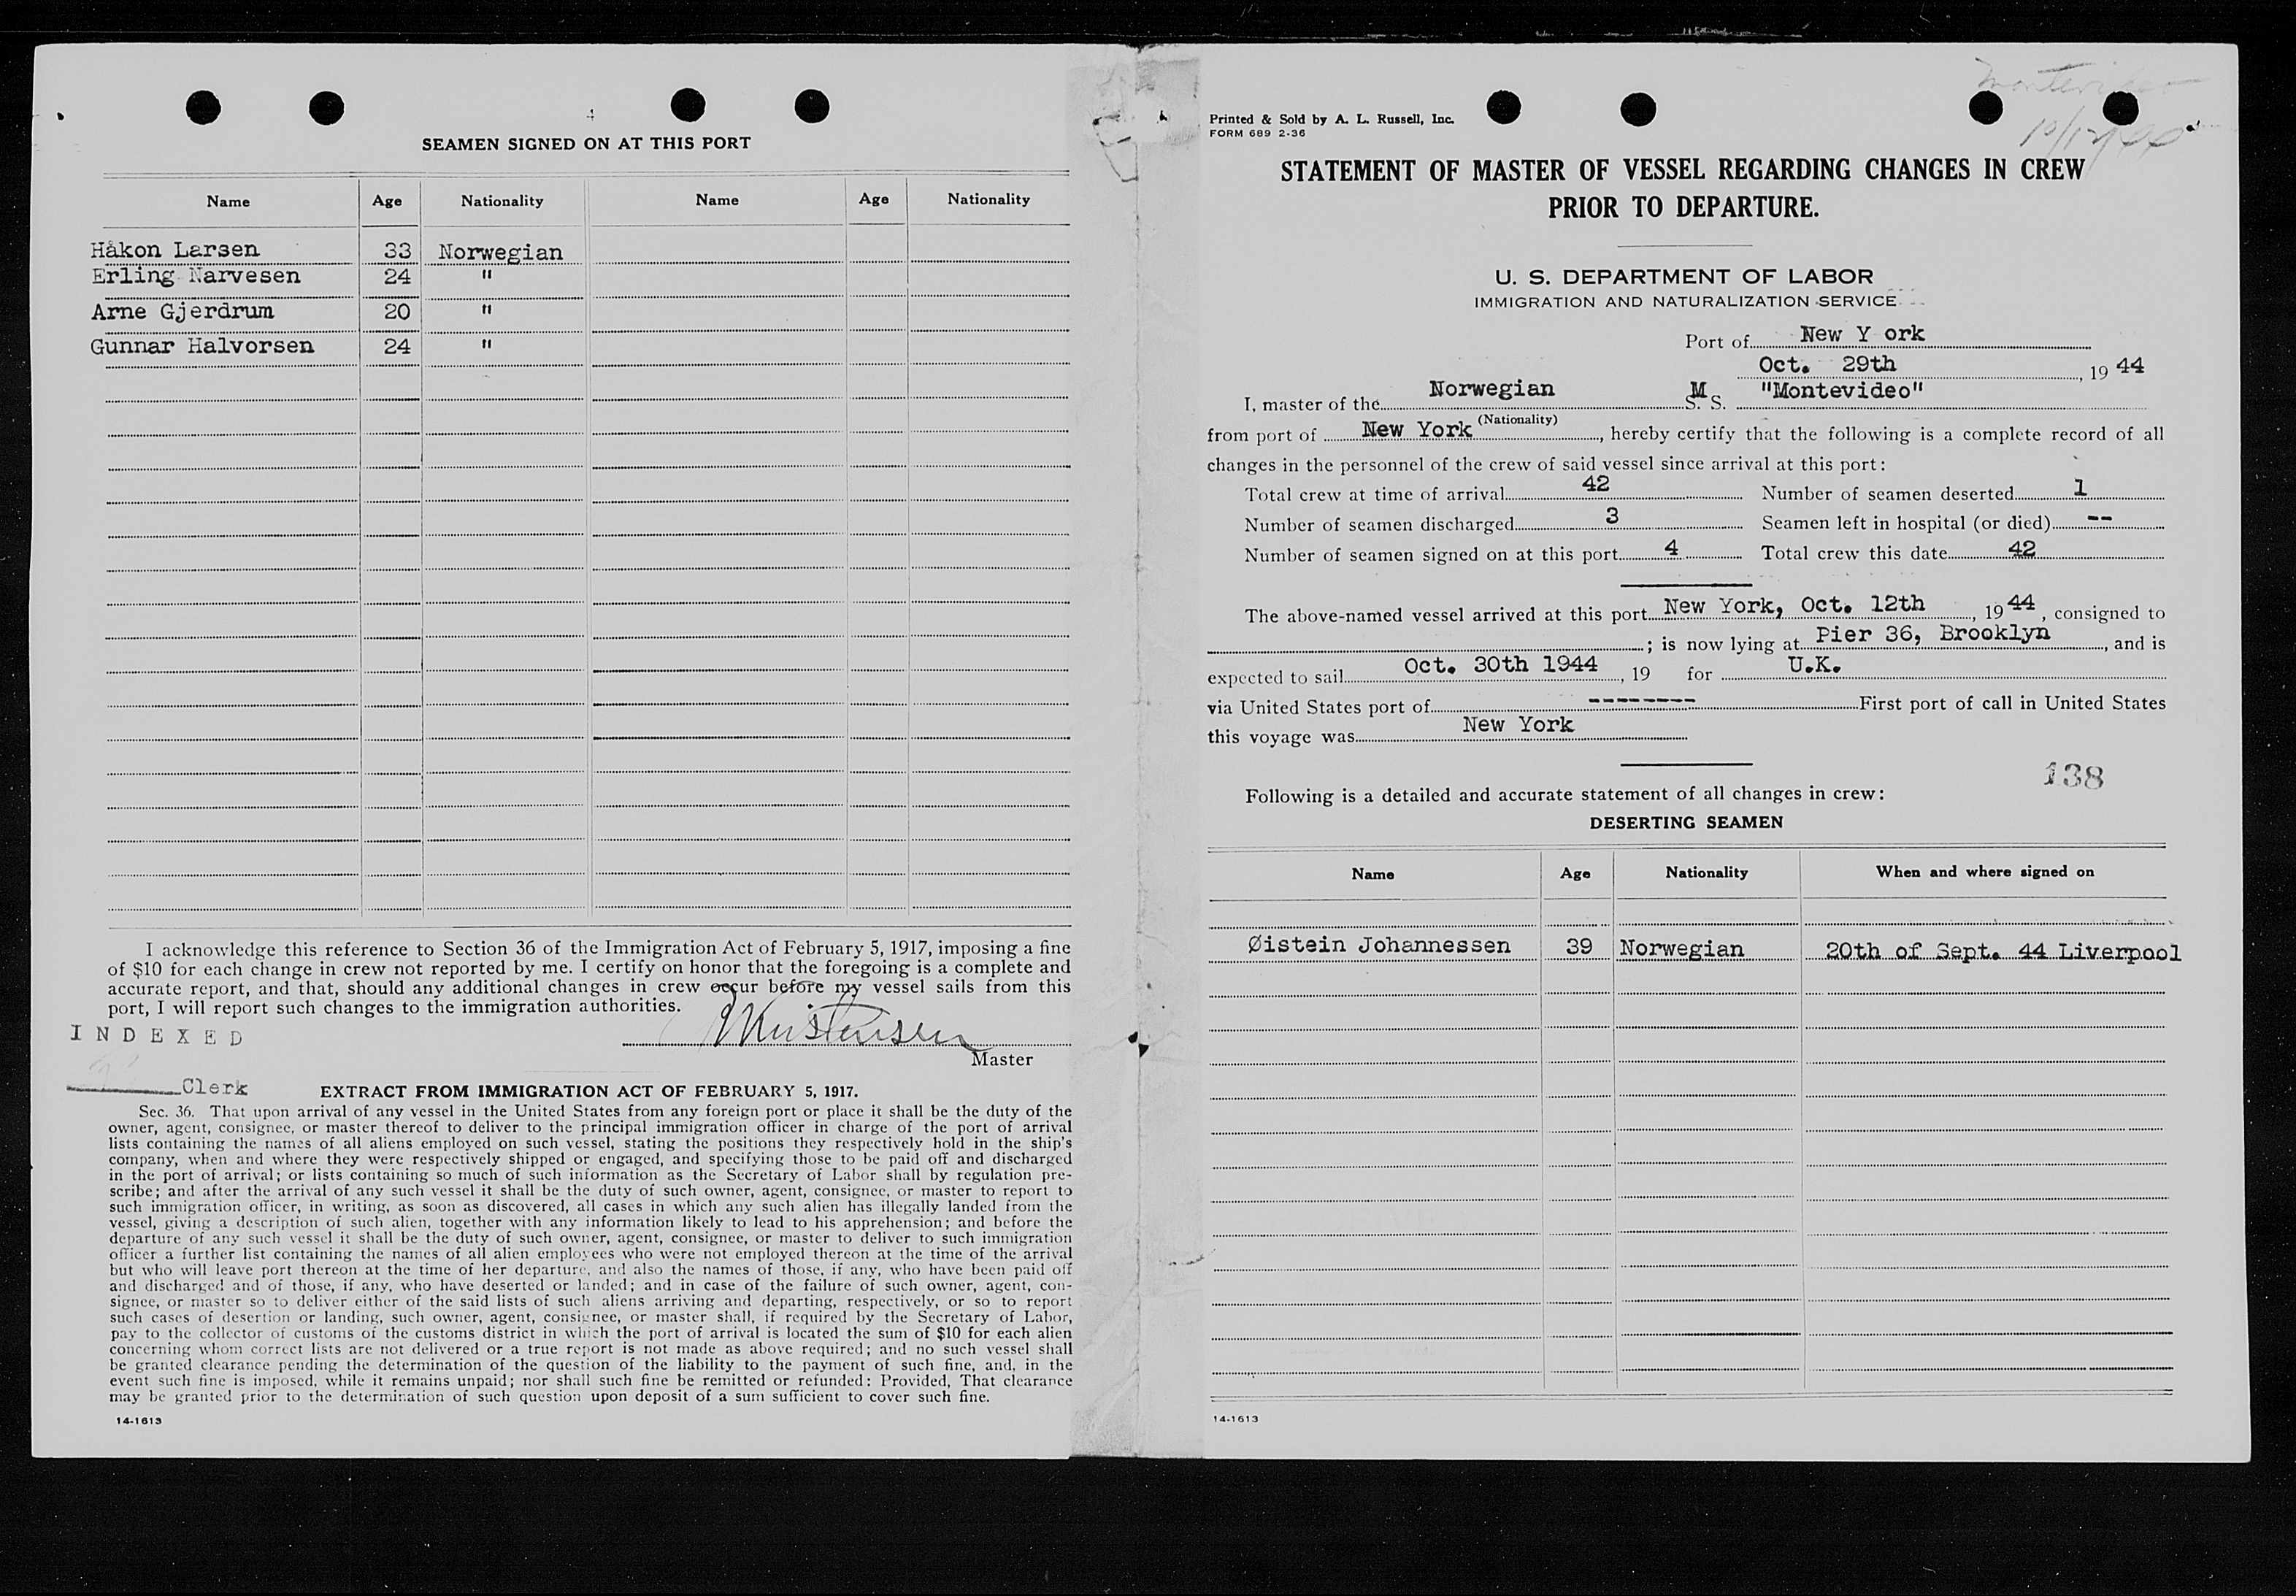 4
SEAMEN SIGNED ON AT THIS PORT
Name Age Nationality Name Age Nationality
Håkon Larsen 33 Norwegian
Erling Narvesen 24 "
Arne Gjerdrum 20 "
Gunnar Halvorsen 24 "
I acknowledge this reference to Section 36 of the Immigration Act of February 5, 1917, imposing a fine
of $10 for each change in crew not reported by me. I certify on honor that the foregoing is a complete and
accurate report, and that, should any additional changes in crew occur before my vessel sails from this
port, I will report such changes to the immigration authorities.
INDEXED
Master
Clerk
EXTRACT FROM IMMIGRATION ACT OF FEBRUARY 5, 1917.
Sec. 36. That upon arrival of any vessel in the United States from any foreign port or place it shall be the duty of the
owner, agent, consignee, or master thereof to deliver to the principal immigration officer in charge of the port of arrival
lists containing the names of all aliens employed on such vessel, stating the positions they respectively hold in the ship's
company, when and where they were respectively shipped or engaged, and specifying those to be paid off and discharged
in the port of arrival; or lists containing so much of such information as the Secretary of Labor shall by regulation pre-
scribe; and after the arrival of any such vessel it shall be the duty of such owner, agent, consignee, or master to report to
such immigration officer, in writing, as soon as discovered, all cases in which any such alien has illegally landed from the
vessel, giving a description of such alien, together with any information likely to lead to his apprehension; and before the
departure of any such vessel it shall be the duty of such owner, agent, consignee, or master to deliver to such immigration
officer a further list containing the names of all alien employees who were not employed thereon at the time of the arrival
but who will leave port thereon at the time of her departure, and also the names of those, if any, who have been paid off
and discharged and of those, if any, who have deserted or landed; and in case of the failure of such owner, agent, con-
signee, or master so to deliver either of the said lists of such aliens arriving and departing, respectively, or so to report
such cases of desertion or landing, such owner, agent, consignee, or master shall, if required by the Secretary of Labor,
pay to the collector of customs of the customs district in which the port of arrival is located the sum of $10 for each alien
concerning whom correct lists are not delivered or a true report is not made as above required; and no such vessel shall
be granted clearance pending the determination of the question of the liability to the payment of such fine, and, in the
event such fine is imposed, while it remains unpaid; nor shall such fine be remitted or refunded: Provided, That clearance
may be granted prior to the determination of such question upon deposit of a sum sufficient to cover such fine.
14-1613
Montevideo
Printed & Sold by A. L. Russell, Inc.
FORM 689 2-36
STATEMENT OF MASTER OF VESSEL REGARDING CHANGES IN CREW
PRIOR TO DEPARTURE.
U. S. DEPARTMENT OF LABOR
IMMIGRATION AND NATURALIZATION SERVICE
Port of New Y ork
Oct. 29th, 19 44
I, master of the Norwegian M S. S. "Montevideo"
(Nationality)
from port of New York, hereby certify that the following is a complete record of all
changes in the personnel of the crew of said vessel since arrival at this port:
Total crew at time of arrival 42 Number of seamen deserted 1
Number of seamen discharged 3 Seamen left in hospital (or died) --
Number of seamen signed on at this port 4 Total crew this date 42
The above-named vessel arrived at this port New York, Oct. 12th, 19 44, consigned to
; is now lying at Pier 36, Brooklyn, and is
expected to sail Oct. 30th 1944, 19 for U.K.
via United States port of -------- First port of call in United States
this voyage was New York
138
Following is a detailed and accurate statement of all changes in crew:
DESERTING SEAMEN
Name Age Nationality When and where signed on
Øistein Johannessen 39 Norwegian 20th of Sept. 44 Liverpool
14-1613